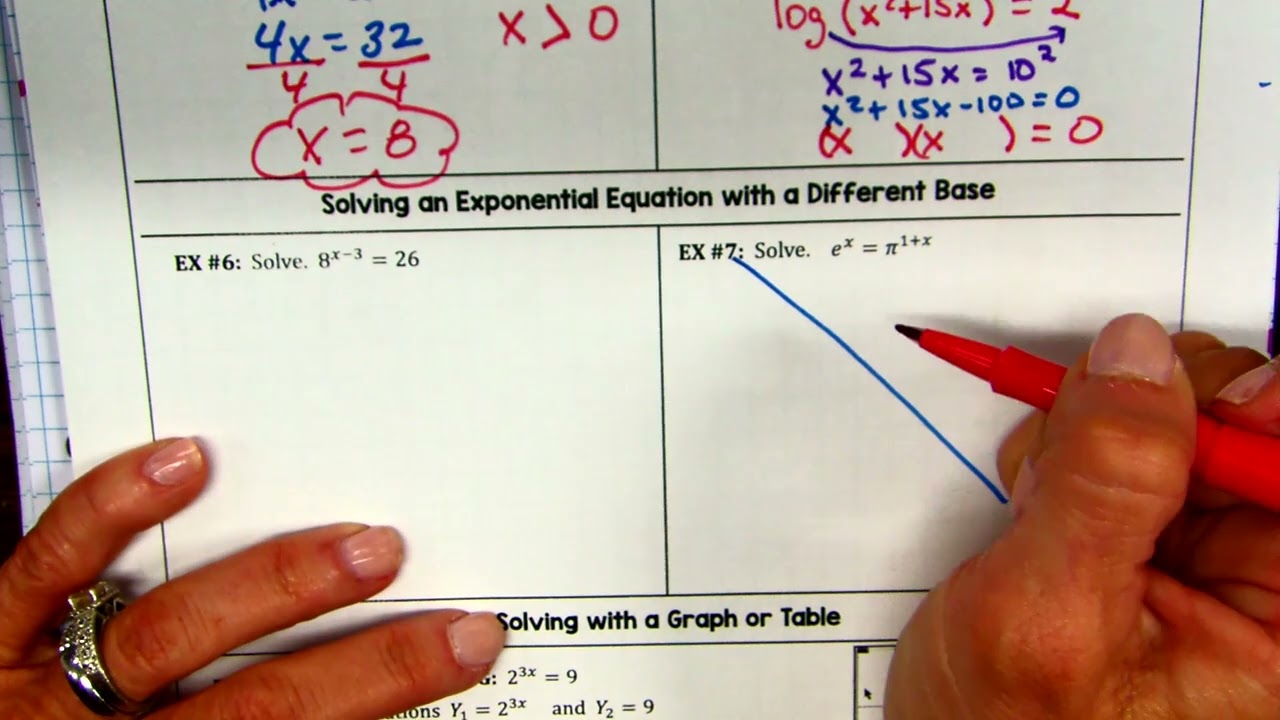 4x = 32
4 4
x > 0
x = 8
log (x²+15x) = 2
x² + 15x = 10²
x² + 15x - 100 = 0
(x )(x ) = 0
Solving an Exponential Equation with a Different Base
EX #6: Solve. 8ˣ⁻³ = 26
EX #7: Solve. eˣ = π¹⁺ˣ
Solving with a Graph or Table
: 2³ˣ = 9
Y₁ = 2³ˣ and Y₂ = 9